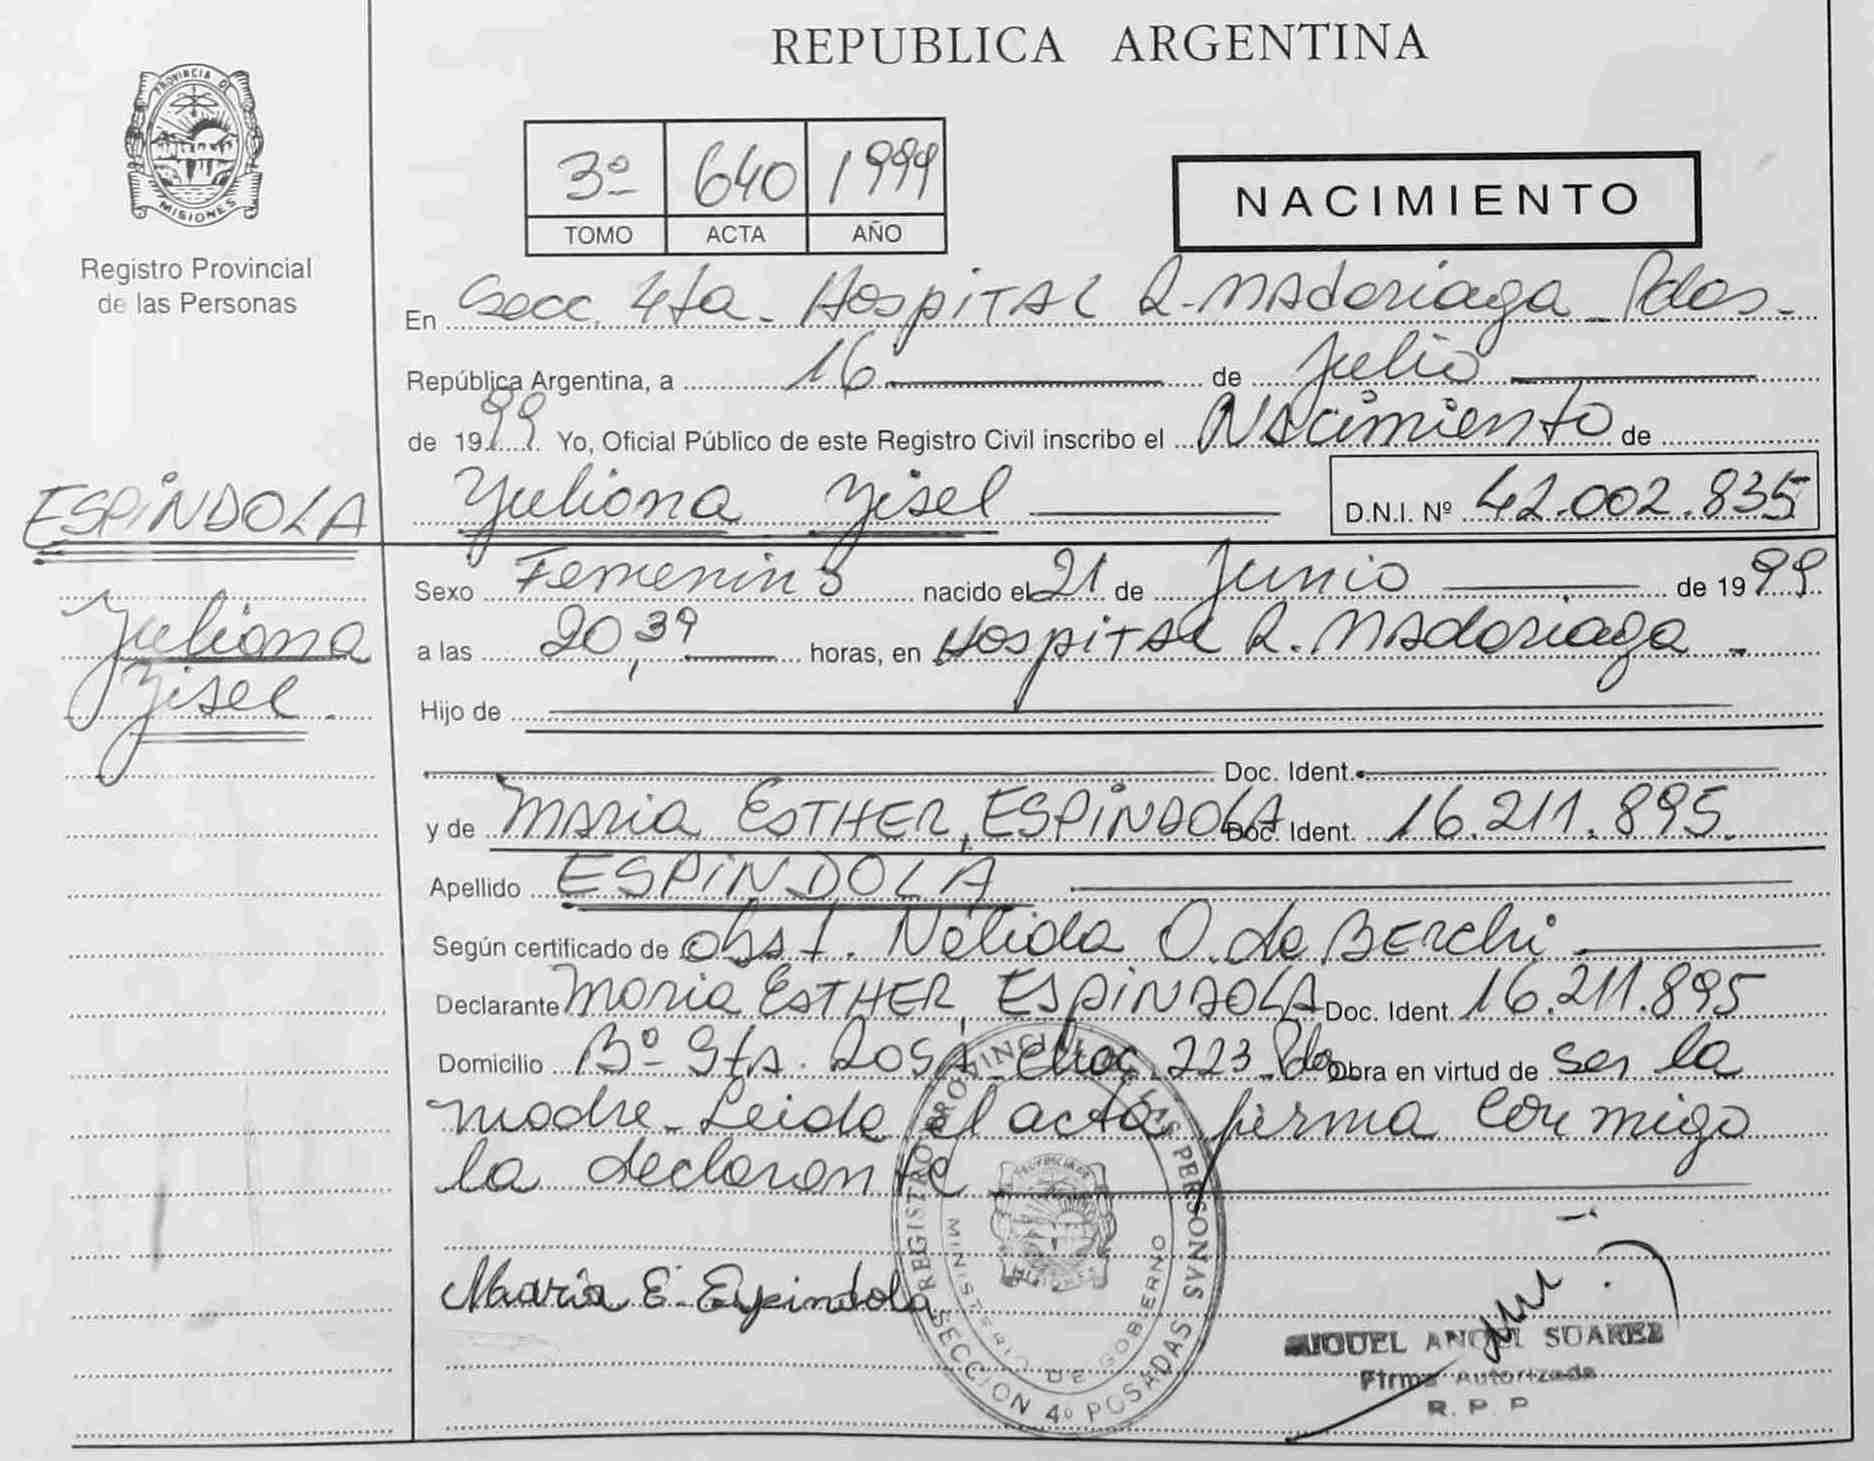 REPUBLICA ARGENTINA
PROVINCIA DE
MISIONES
Registro Provincial
de las Personas
3º 640 1999
TOMO ACTA AÑO
NACIMIENTO
En Secc. 4ta - Hospital R. Madariaga - Pdas -
República Argentina, a 16 de Julio
de 1999. Yo, Oficial Público de este Registro Civil inscribo el Nacimiento de
ESPíNDOLA
Yuliana Yisel
D.N.I. Nº 42.002.835
Yuliana
Yisel.
Sexo Femenino nacido el 21 de Junio de 1999
a las 20,39 horas, en Hospital R. Madariaga -
Hijo de
Doc. Ident.
y de Maria ESTHER, ESPíNDOLA Doc. Ident. 16.211.895.
Apellido ESPíNDOLA
Según certificado de obst. Nélida O. de Berchi
Declarante Maria ESTHER, ESPíNDOLA Doc. Ident. 16.211.895
Domicilio Bº Sta. Rosa - chac. 223 - Pdas Obra en virtud de ser la
madre - Leida el acta firma conmigo
la declarante
María E. Espindola
REGISTRO PROVINCIAL DE LAS PERSONAS
SECCION 4º POSADAS
MINISTERIO DE GOBIERNO
MIGUEL ANGEL SUAREZ
Firma Autorizada
R. P. P